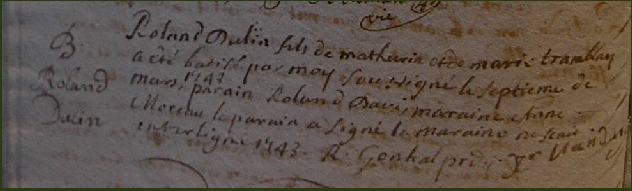 B.
Roland
Dalin
Roland Dalin fils de mathurin et de marie tramblay
a été batisé par moy soussigné le septieme de
mars, 1743 parain Roland Davi, maraine Anne
Moreau le parain a signé la maraine ne scait
interligne 1743. R.